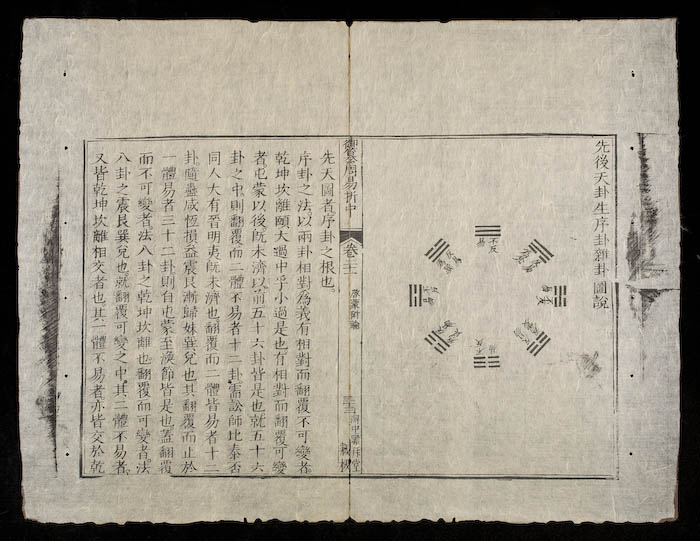 先後天卦生序卦雜卦圖說
不反
不反
御纂周易折中
卷二十二
啟蒙附論
先天圖者序卦之根也
序卦之法以兩卦相對為義有相對而翻覆不可變者
乾坤坎離頤大過中孚小過是也有相對而翻覆可變
者屯蒙以後既未濟以前五十六卦皆是也就五十六
卦之中則翻覆而二體不易者十二卦需訟師比泰否
同人大有晉明夷既未濟也翻覆而二體皆易者十二
卦隨蠱咸恆損益震艮漸歸妹巽兌也其翻覆而止於
一體易者三十二卦則自屯蒙至渙節皆是也蓋翻覆
而不可變者法八卦之乾坤坎離也翻覆而可變者法
八卦之震艮巽兌也就翻覆可變之中其二體不易者
又皆乾坤坎離相交者也其一體不易者亦皆交於乾